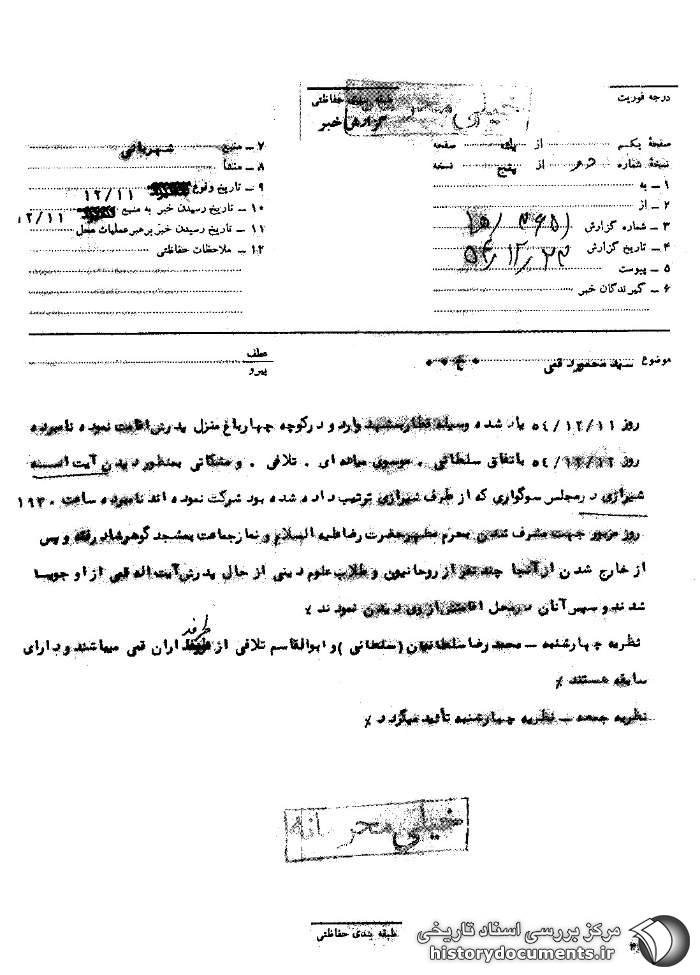 درجه فوریت
طبقه بندی حفاظتی
خیلی
گزارش خبر
صفحهٔ یکم از صفحه
نسخهٔ شماره دو از پنج نسخه
۱ ــ به
۲ ــ از
۳ ــ شماره گزارش
۴ ــ تاریخ گزارش ۵۴/۱۲/۲۳
۵ ــ پیوست
۶ ــ گیرندگان خبر
۷ ــ منبع شهربانی
۸ ــ منشأ
۹ ــ تاریخ وقوع ۱۲/۱۱
۱۰ ــ تاریخ رسیدن خبر به منبع ۱۲/۱۱
۱۱ ــ تاریخ رسیدن خبر برهبر عملیات محل
۱۲ ــ ملاحظات حفاظتی
موضوع سید محمود قمی
عطف
پیرو
روز ۵۴/۱۲/۱۱ یاد شده وسیله قطار بمشهد وارد و در کوچه چهارباغ منزل پدرش اقامت نموده نامبرده
روز ۵۴/۱۲/۱۲ باتفاق سلطانی . موسوی میانه ای . تلافی . و مشکاتی بمنظور دیدن آیت اله
شیرازی در مجلس سوگواری که از طرف شیرازی ترتیب داده شده بود شرکت نموده اند نامبرده ساعت ۱۹۳۰
روز مزبور جهت مشرف شدن بحرم مطهر حضرت رضا علیه السلام و نماز جماعت بمسجد گوهرشاد رفته و پس
از خارج شدن از آنجا چند نفر از روحانیون و طلاب علوم دینی از حال پدرش آیت اله قمی از او جویا
شدند و سپس آنان در محل اقامتش از وی دیدن نمودند ٪
نظریه چهارشنبه ــ محمدرضا سلطانیان (سلطانی) و ابوالقاسم تلافی از طرفداران قمی میباشند و دارای
سابقه هستند ٪
نظریه جمعه ــ نظریه چهارشنبه تأئید میگردد ٪
خیلی محرمانه
طبقه بندی حفاظتی
مرکز بررسی اسناد تاریخی
historydocuments.ir